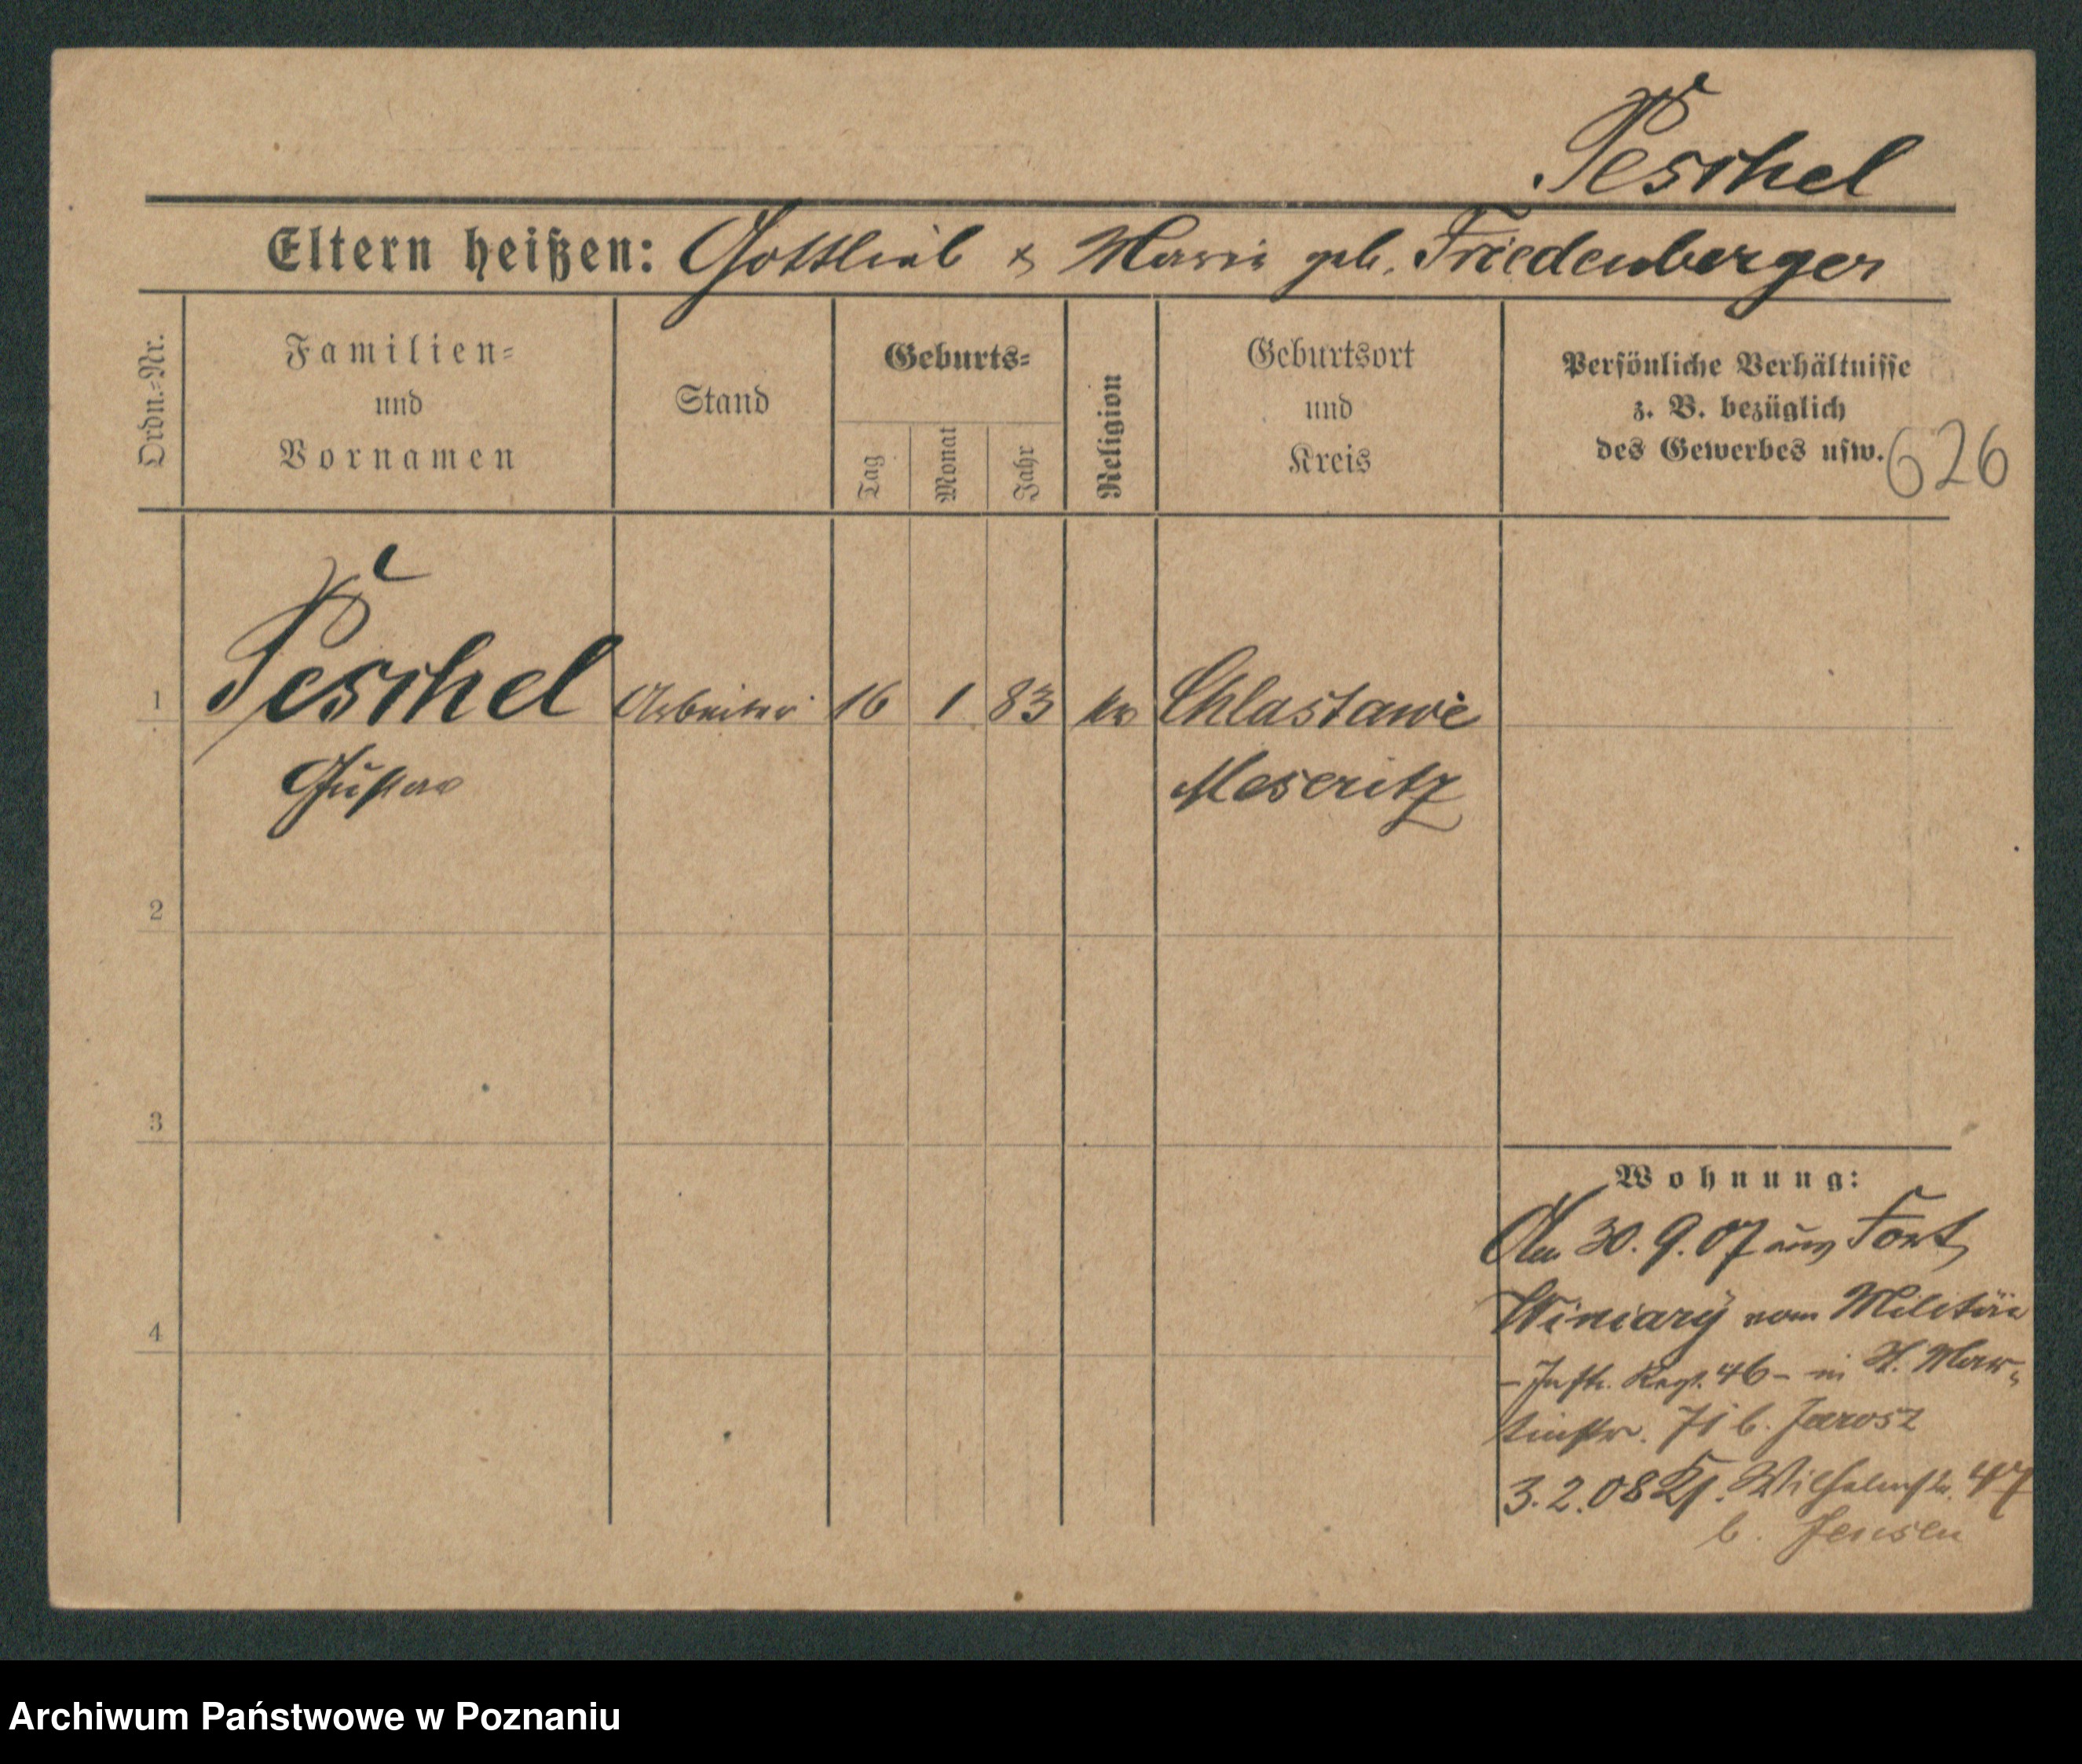 Peschel
Eltern heißen: Gottlieb & Marie geb. Friedenberger
Ordn.-Nr.
Familien-
und
Vornamen
Stand
Geburts-
Tag
Monat
Jahr
Religion
Geburtsort
und
Kreis
Persönliche Verhältnisse
z. B. bezüglich
des Gewerbes usw.
626
1 Peschel Arbeiter 16 1 83 Chlastawe
Gustav Meseritz
2
3
4
Wohnung:
Am 30. 9. 07 aus Fort
Winiary vom Militär
- Inftr. Regt. 46 - in St. Mar-
tinstr. 71 b. Jarosz
3. 2. 08 Wilhelmstr. 47
b. Jensen
Archiwum Państwowe w Poznaniu